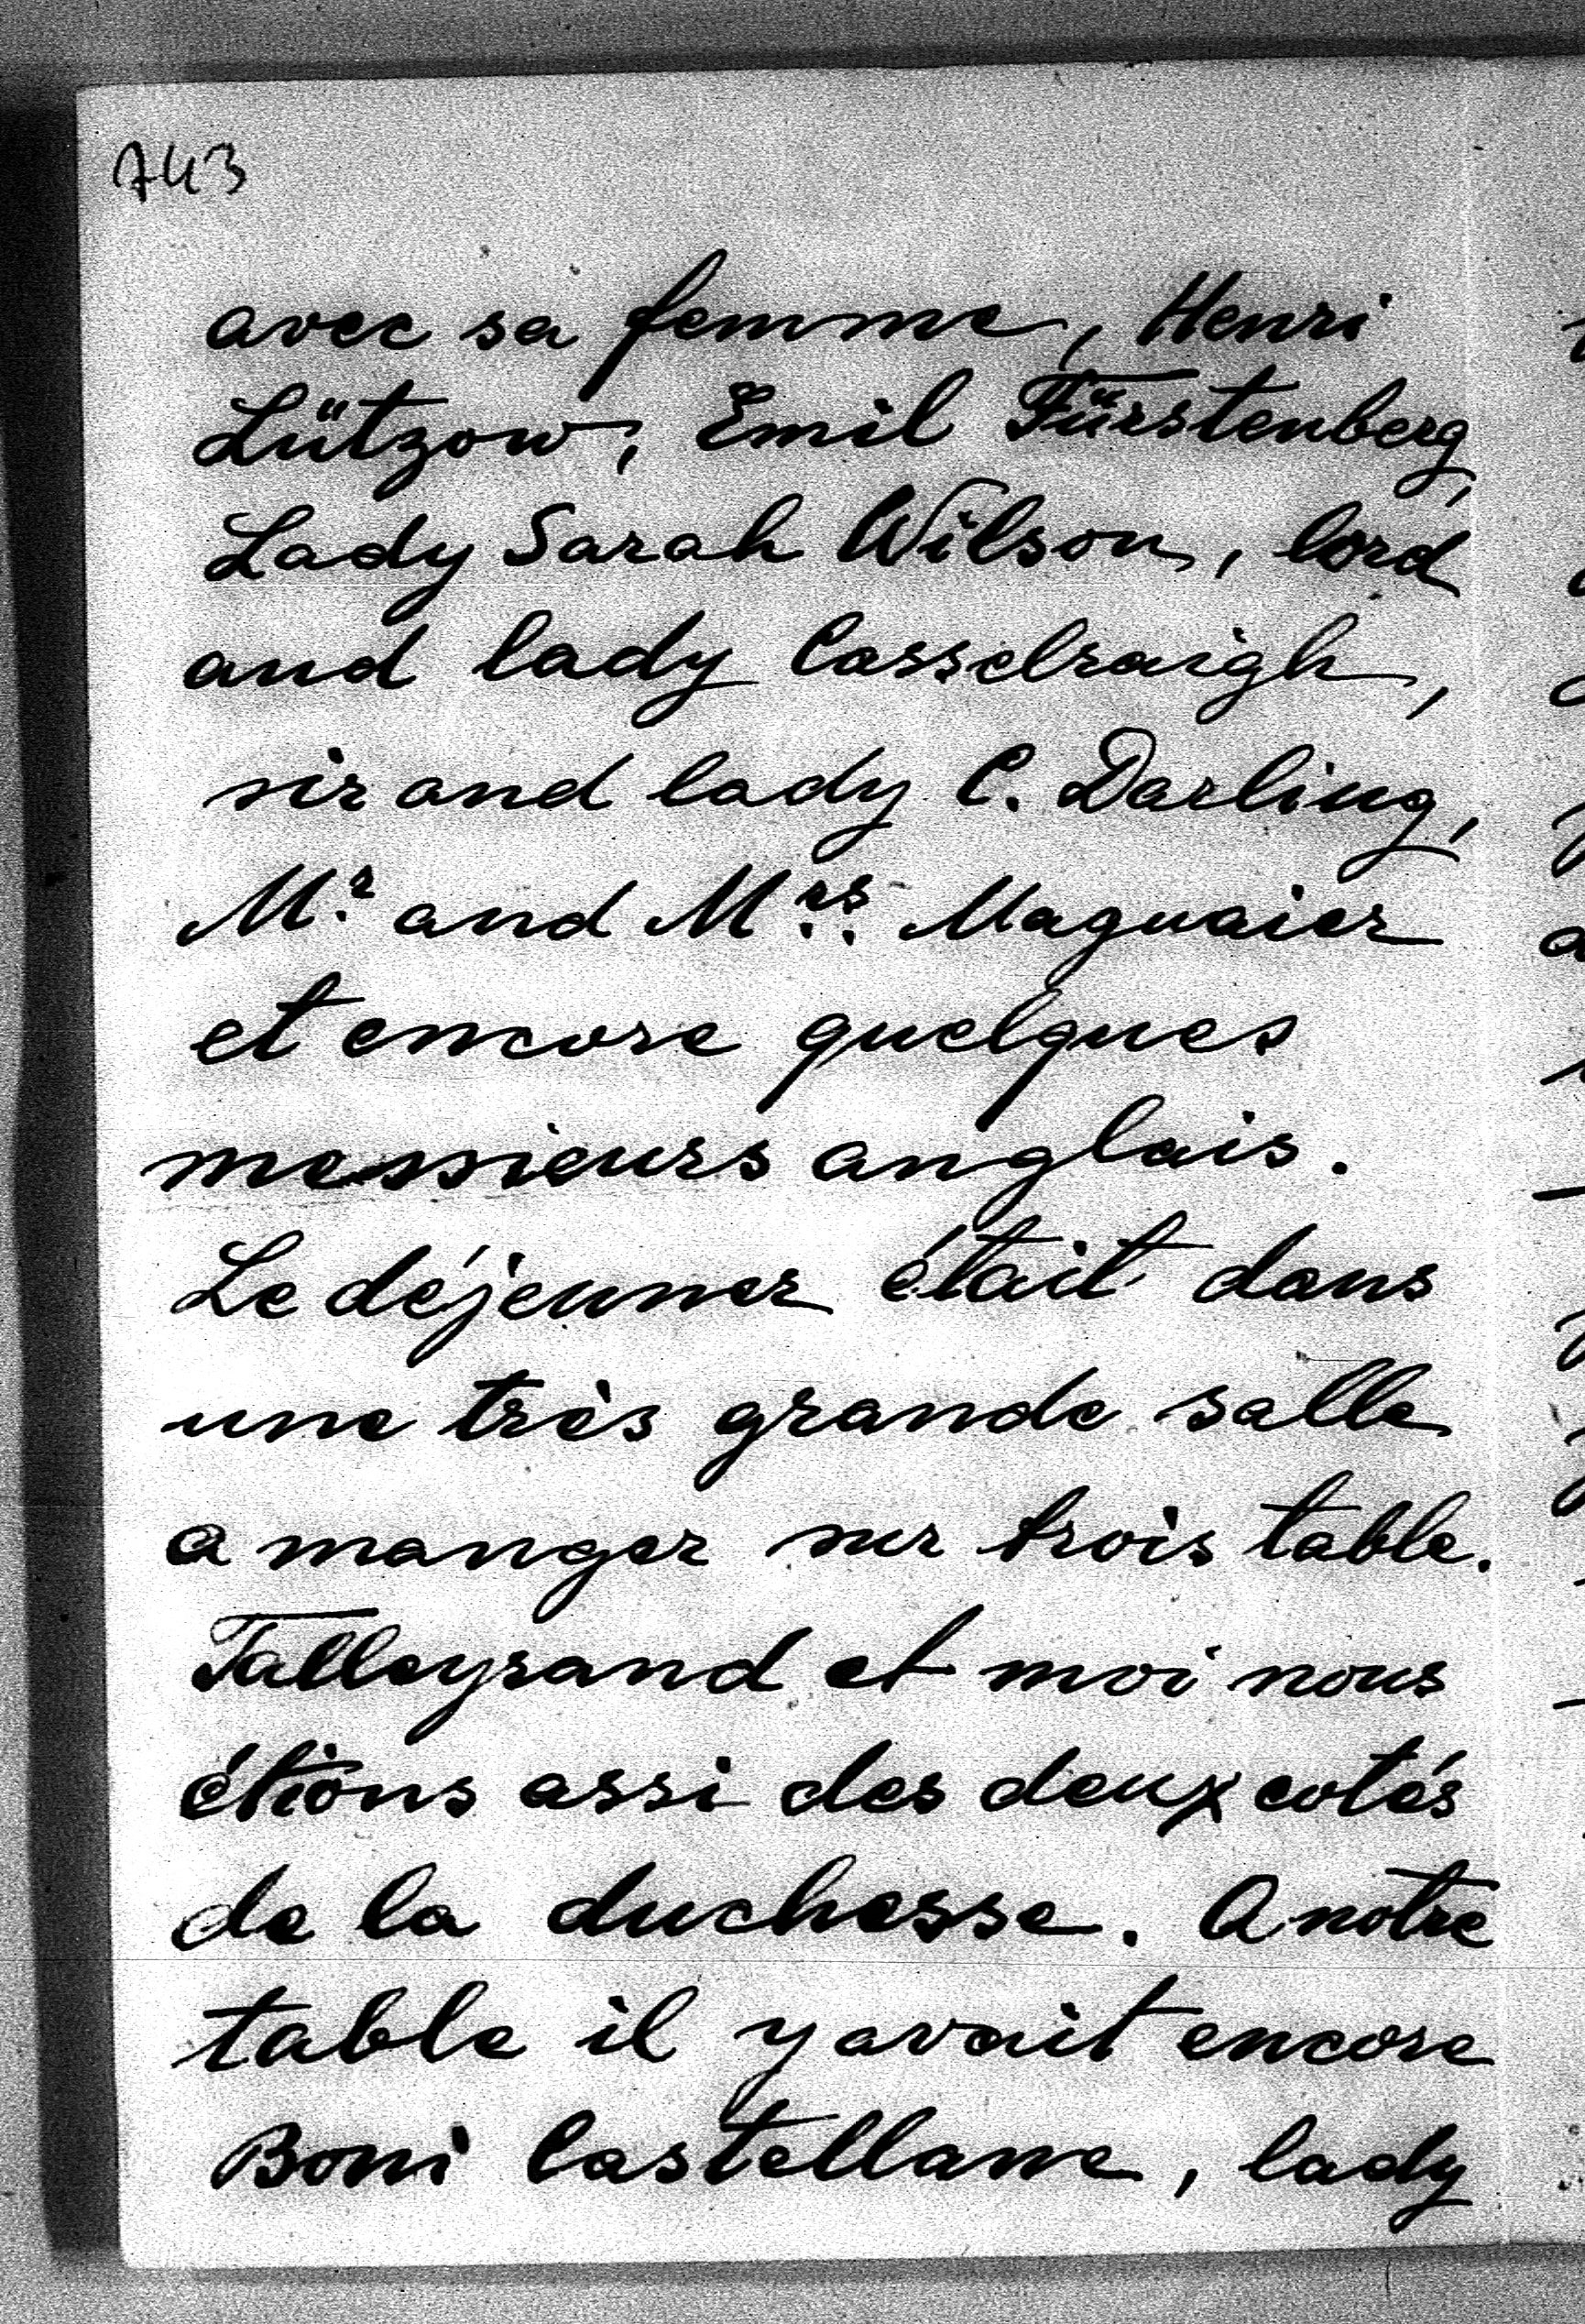 743
avec sa femme, Henri
Lützow, Emil Fürstenberg,
Lady Sarah Wilson, lord
and lady Casselraigh,
sir and lady C. Darling,
Mr. and Mrs. Maguaier
et encore quelques
messieurs anglais.
Le déjeuner était dans
une très grande salle
a manger sur trois table.
Talleyrand et moi nous
étions assi des deux cotés
de la duchesse. A notre
table il y avait encore
Boni Castellane, lady